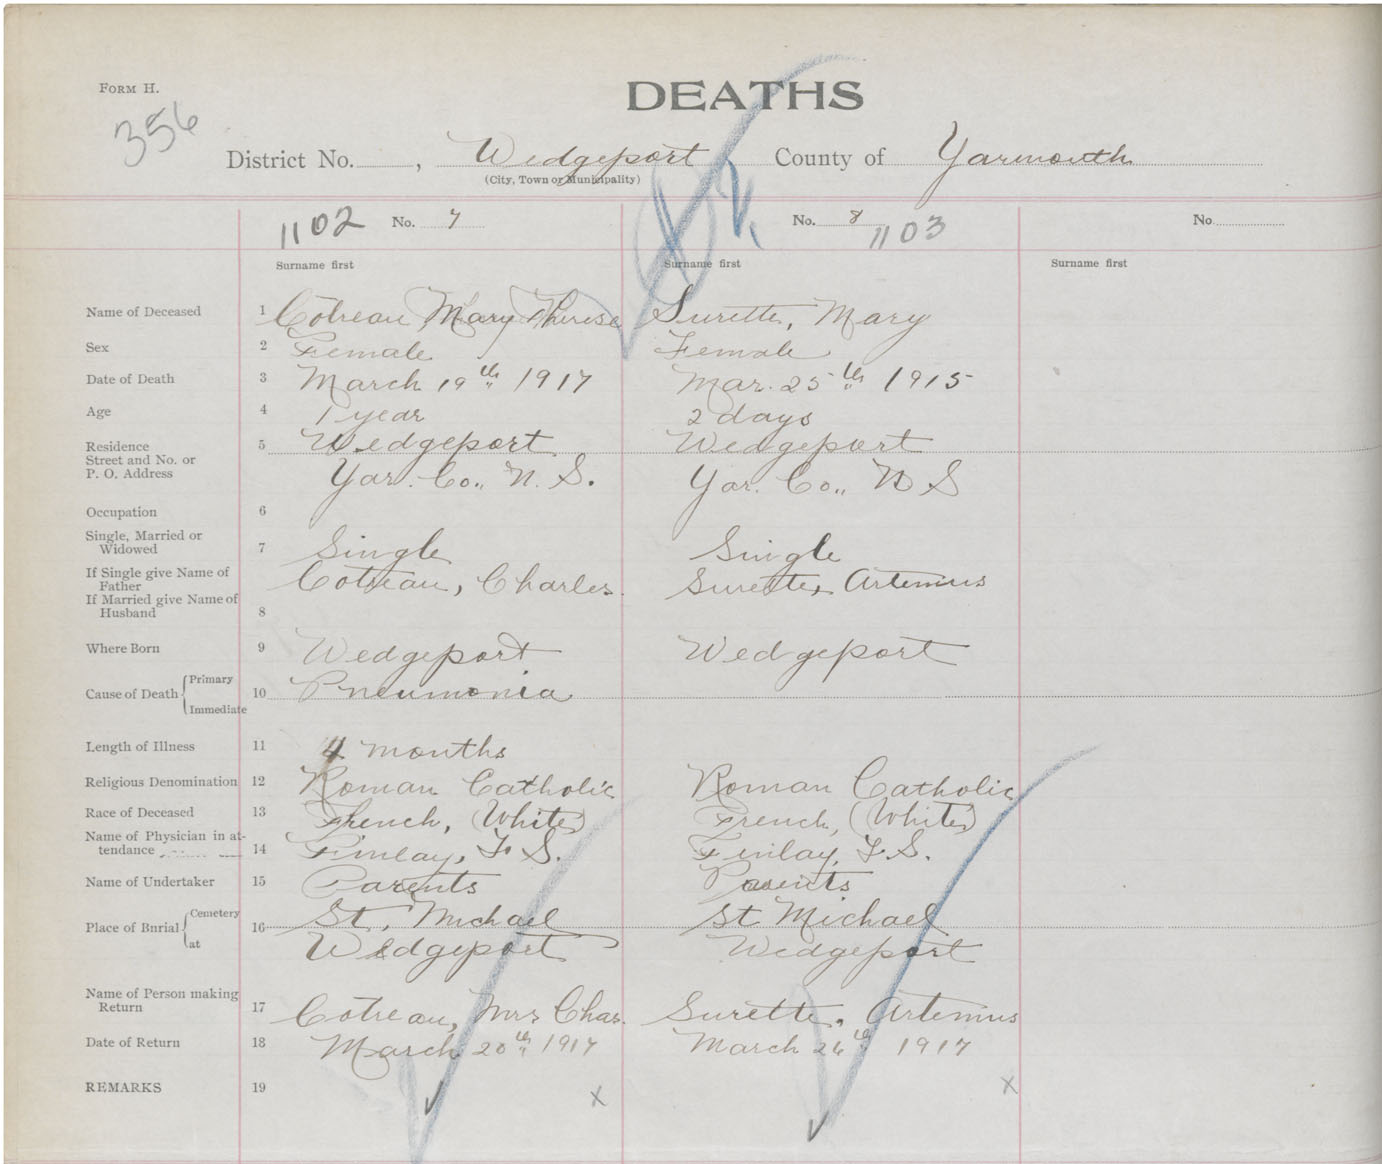 FORM H.
DEATHS
356
District No. , Wedgeport County of Yarmouth
(City, Town or Municipality)
1102 No. 7 No. 8 1103 No.
Surname first Surname first Surname first
Name of Deceased 1 Cotreau Mary Therese Surette, Mary
Sex 2 Female Female
Date of Death 3 March 19th 1917 Mar. 25th 1915
Age 4 1 year 2 days
Residence 5 Wedgeport Wedgeport
Street and No. or
P. O. Address Yar. Co., N. S. Yar. Co., N S
Occupation 6
Single, Married or
Widowed 7 Single Single
If Single give Name of
Father Cotreau, Charles. Surette, Artemus
If Married give Name of
Husband 8
Where Born 9 Wedgeport Wedgeport
Cause of Death Primary
10 Pneumonia
Immediate
Length of Illness 11 4 months
Religious Denomination 12 Roman Catholic Roman Catholic
Race of Deceased 13 French, (White) French, (White)
Name of Physician in at-
tendance 14 Finlay, F. S. Finlay, F. S.
Name of Undertaker 15 Parents Parents
Place of Burial Cemetery 16 St. Michael St Michael
at Wedgeport Wedgeport
Name of Person making
Return 17 Cotreau, Mrs Chas. Surette, Artemus
Date of Return 18 March 20th 1917 March 26th 1917
REMARKS 19 x x